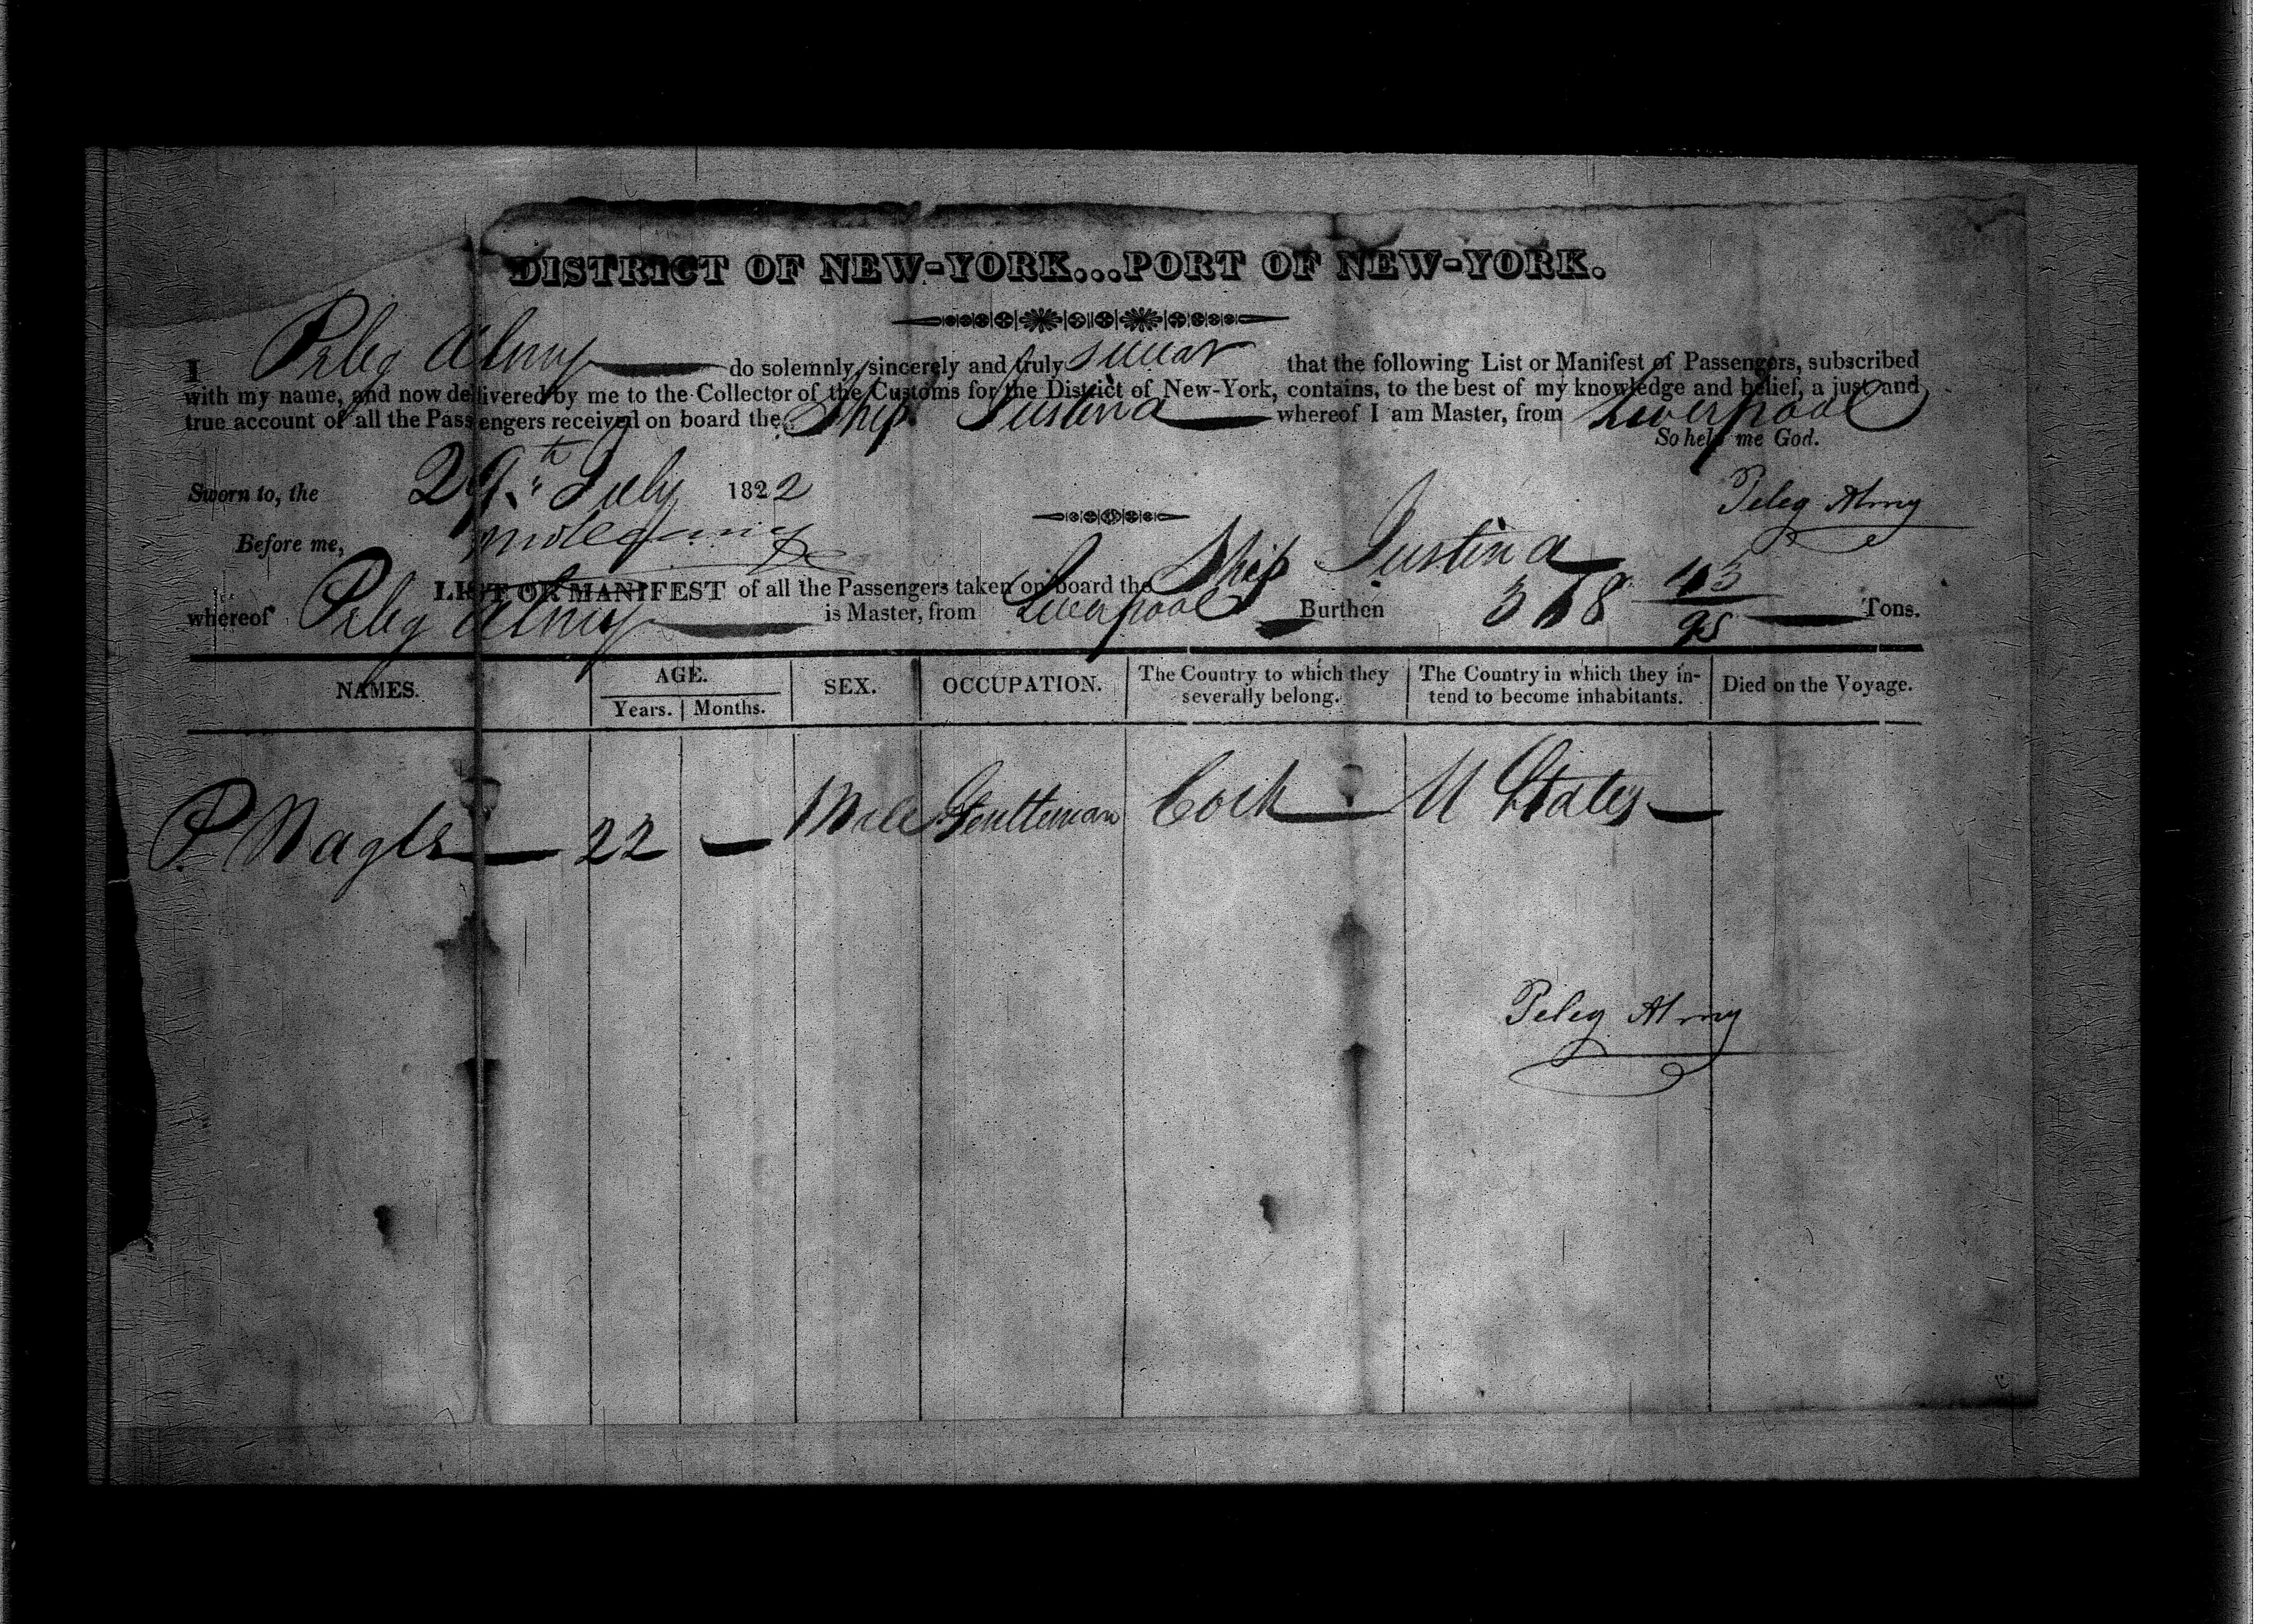 DISTRICT OF NEW-YORK...PORT OF NEW-YORK.
I Peleg Almy do solemnly, sincerely and truly swear that the following List or Manifest of Passengers, subscribed
with my name, and now delivered by me to the Collector of the Customs for the District of New-York, contains, to the best of my knowledge and belief, a just and
true account of all the Passengers received on board the Ship Justina whereof I am Master, from Liverpool
So help me God.
Sworn to, the 29th July 1822
Peleg Almy
Before me,
LIST OR MANIFEST of all the Passengers taken on board the Ship Justina
whereof Peleg Almy is Master, from Liverpool Burthen 45/95 Tons.
NAMES. AGE. SEX. OCCUPATION. The Country to which they severally belong. The Country in which they intend to become inhabitants. Died on the Voyage.
Years. Months.
P Nagle 22 Male Gentleman Cork U States
Peleg Almy